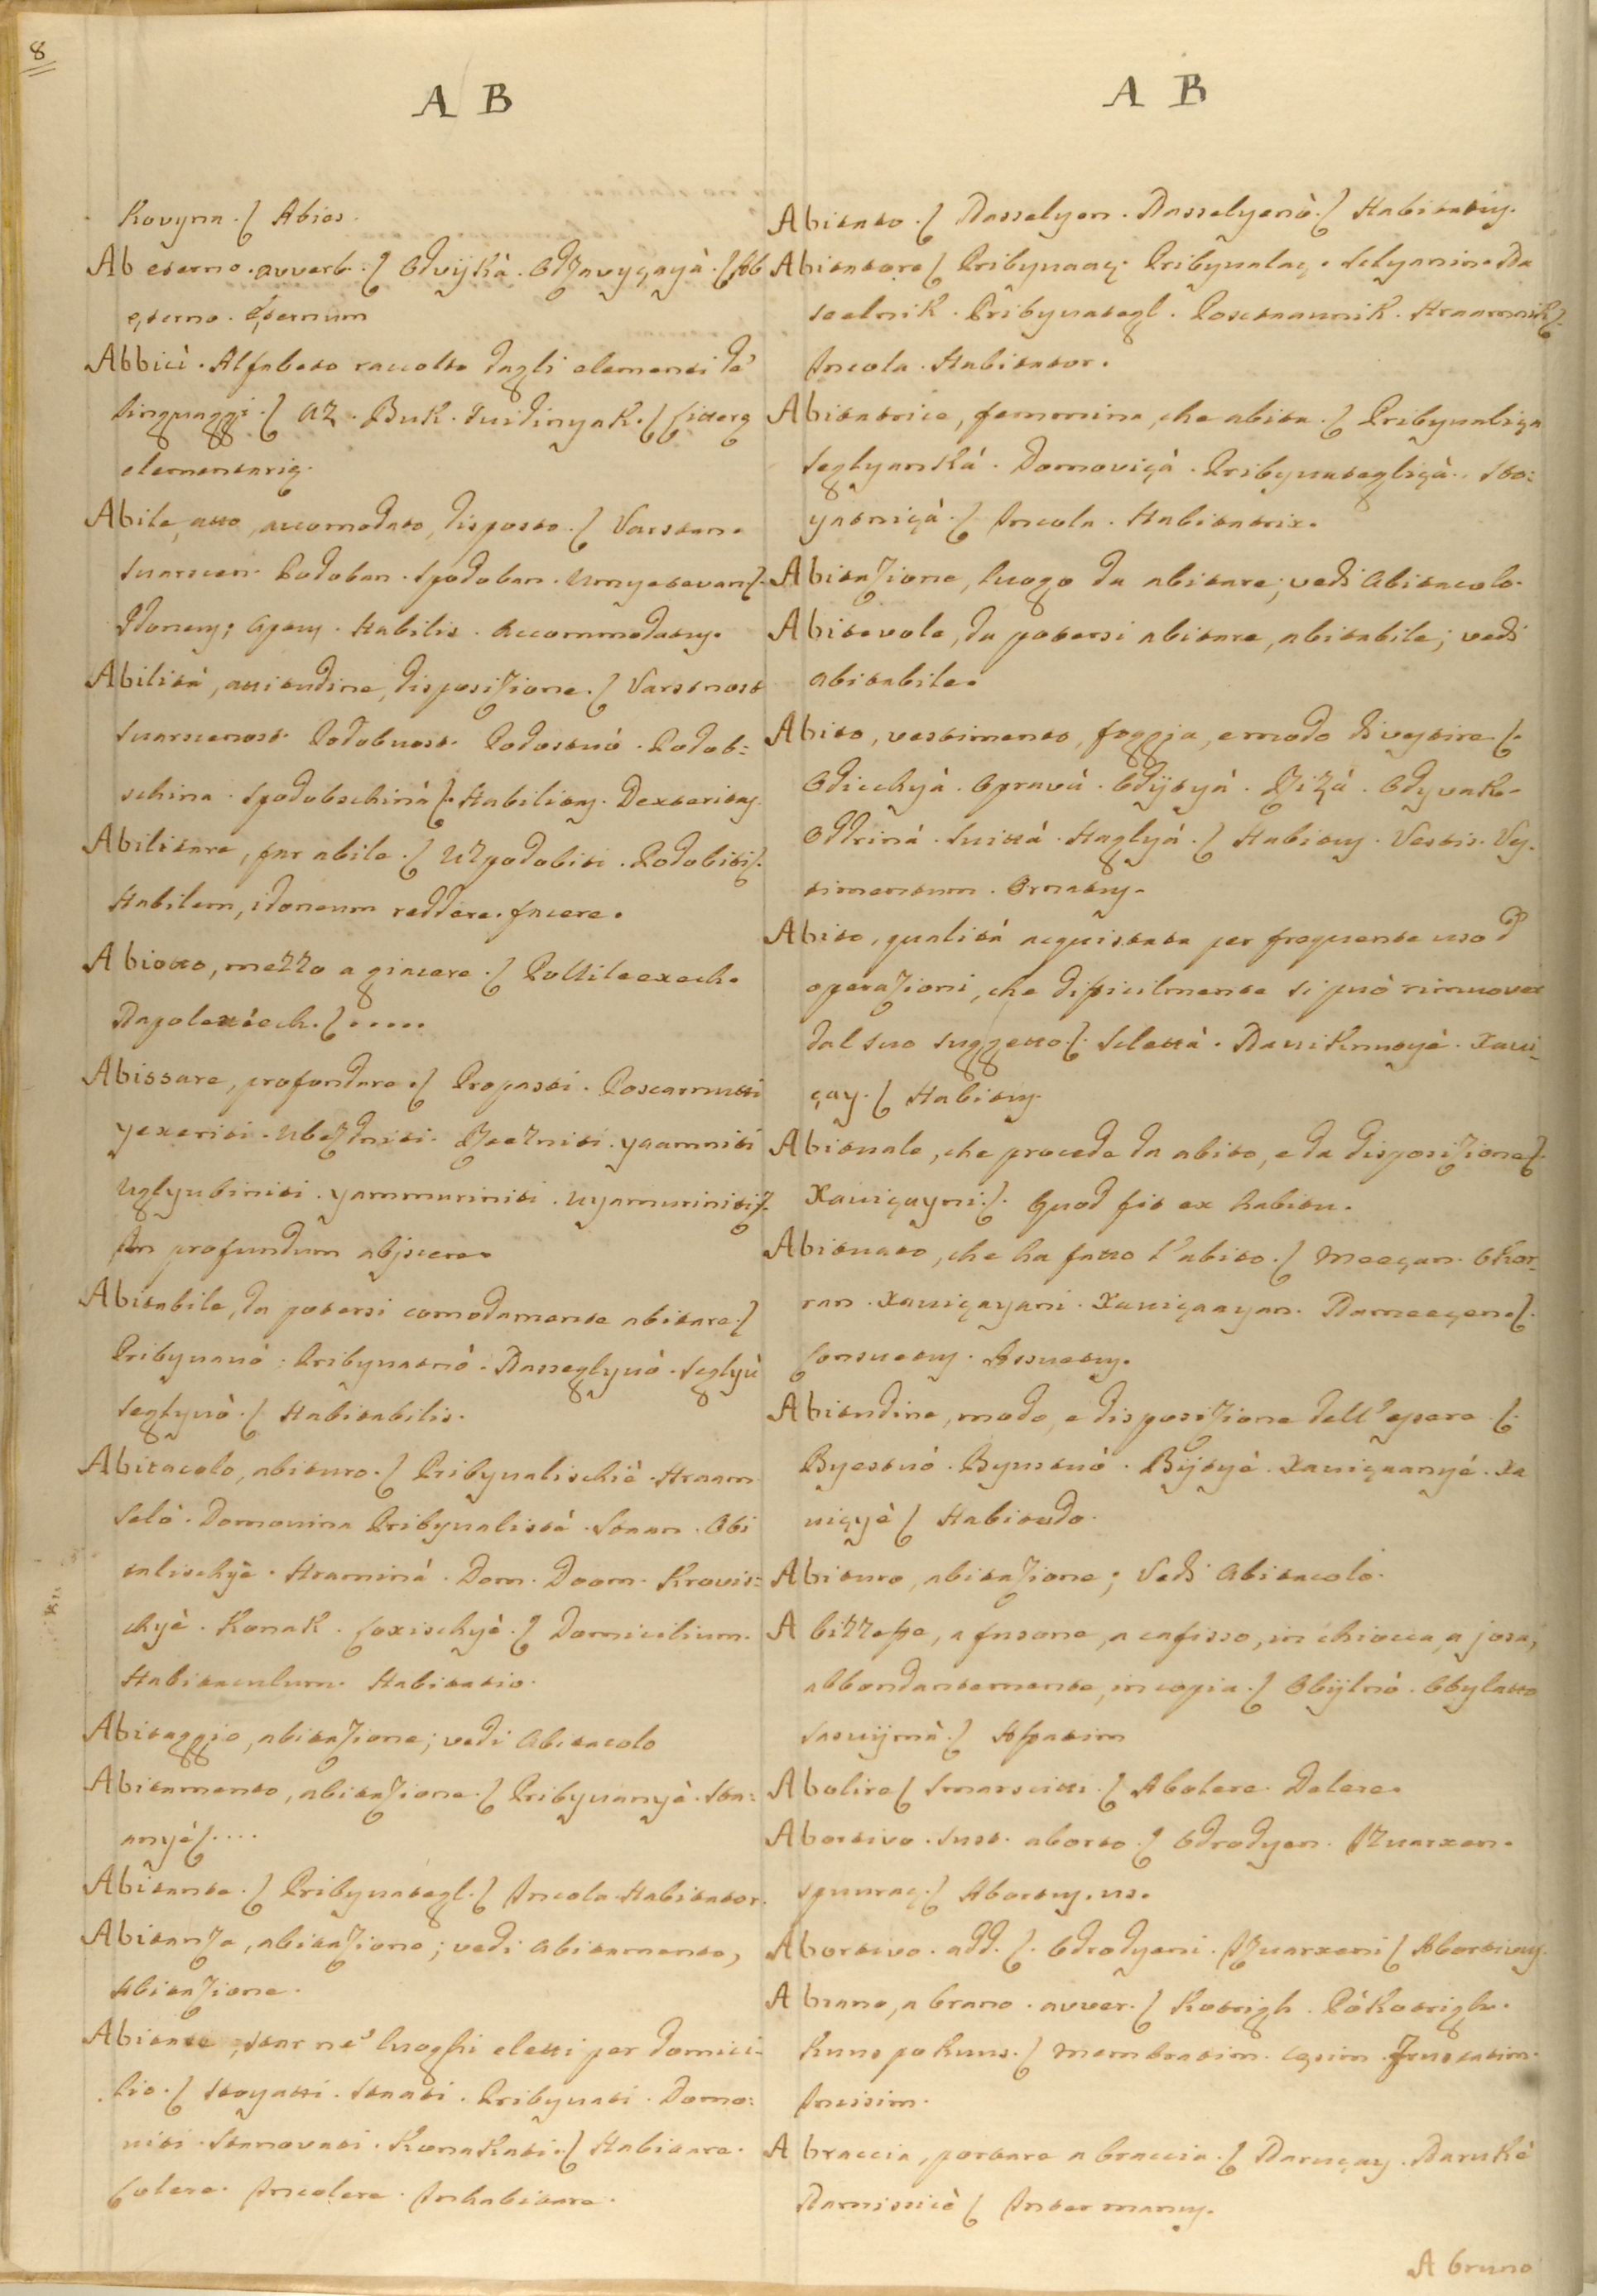 8
A B
Kovyna. ſ Abies.
Ab eterno. avverb. ſ Odvijkà. Odzavyçayà. ſ Ab
eterno. Eternum
Abbicì. Alfabeto raccolto dagli elementi de'
linguaggi. ſ Az. Buk. Suidinyak. ſ
elementariȩ.
Abile, atto, accomodato, disposto. ſ Varstan.
Suarscen. Podoban. Spodoban. Umyetevan ſ.
Idoneus; Aptus. Habilis. Accommodatus.
Abilità, attitudine, disposizione. ſ Varstnost
Suarscenost. Podobnost. Podostuó. Podob=
schina. Spodobschinà ſ. Habilitas. Dexteritas.
Abilitare, far abile. ſ Uzpodobiti. Podobiti ſ.
Habilem, idoneum reddere. facere.
A biotto, mezzo a giacere. ſ
ſ .....
Abissare, profondare. ſ Propasti. Poscarnutti
yexeriti. Ubezdniti. yaamniti
Uglyubiniti. yammuriniti. uyamuriniti ſ.
In profundum abjicere.
Abitabile, da potersi comodamente abitare. ſ
Pribyuauó. Pribyuatnó. Nasseglyuó. Seglyù
Seglyuò. ſ Habitabilis.
Abitacolo, abituro. ſ Pribyualischiè. Hraam
Selò. Domouina Pribyualistà. Staan. Obi
talischyè. Hraminà. Dom. Doom. Krovis=
chyè. Konak. Loxischyè. ſ Domicilium.
Habitaculum. Habitatio.
Abitaggio, abitazione; vedi Abitacolo
Abitamento, abitazione. ſ Pribyuanyè. Sta=
anyè ſ ....
Abitante. ſ Pribyuategl. ſ Incola Habitator.
Abitanza, abitazione; vedi Abitamento,
Abitazione.
Abitare, star ne' luoghi eletti per domici=
lio. ſ Stoyatti. Staati. Pribyuati. Domo=
uiti. Stanovati. Konakati. ſ Habitare.
Colere. Incolere. Inhabitare.
A B
Abitato. ſ Nasselyen. Nasselyenò. ſ Habitatus.
Abitatore ſ Pribyuaaç. Pribyualaç. Selyanin. Na
seelnik. Pribyuategl. Postaaunik. Hraamnik ſ.
Incola. Habitator.
Abitatrice, femmina, che abita. ſ Pribyualiça
Seglyankà. Domoviçà. Pribyuategliçà. Sto=
yatniçà. ſ Incola. Habitatrix.
Abitazione, luogo da abitare; vedi Abitacolo.
Abitevole, da potersi abitare, abitabile; vedi
Abitabile.
Abito, vestimento, foggia, e modo di vestire. ſ.
Odicchyà. Opravà. Odijtyà. Rizà. Odyvak.
Oddrinà. Suittà. Haglyà. ſ Habitus. Vestis. Ves=
timentum. Ornatus.
Abito, qualità acquistata per frequente uso d'
operazioni, che dificilmente si può rimuover
dal suo suggetto. ſ. Selettà. Xaui=
çay. ſ Habitus.
Abituale, che procede da abito, e da disposizione ſ.
Xauiçayni. ſ. Quod fit ex habitu.
Abituato, che ha fatto l'abito. ſ Meeçan. Okor=
ran. Xauiçayani. Xauiçaayan. Nameeçen ſ.
Consuetus. Assuetus.
Abitudine, modo, e disposizione dell'essere. ſ.
Byestuó. Byustuó. Bijtyè. Xauiçaanyé. Xa
uiçyè ſ Habitudo.
Abituro, abitazione; Vedi Abitacolo.
A bizzeffe, a fusone, a cafisso, in chiocca, a josa,
abbondantemente, in copia. ſ Obijlnò. Obylatto
Sasuijmà. ſ Affatim
Abolire ſ Smarscitti. ſ Abolere. Delere.
Abortivo. Sust. aborto. ſ Odrodyen. Izuarxen.
spuuraç. ſ Abortus, us.
Abortivo. add. ſ. Odrodyeni. Izuarxeni ſ Abortivus.
A brano, a brano. avver. ſ Kotrigh. Pókotrigh.
Kuus po kuus. ſ Membratim. Cesim. Frustatim.
Incisim.
A braccia, portare a braccia. ſ Naruçay. Narukè
Narnissicè ſ Inter manus.
A bruno